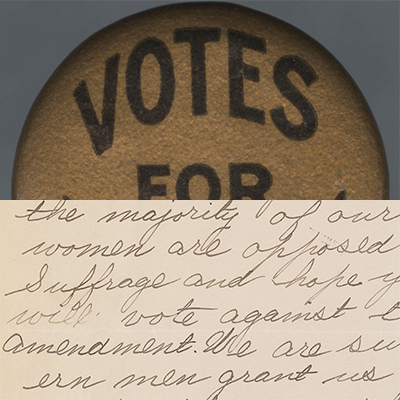 VOTES
FOR
the majority of our
women are opposed
Suffrage and hope y
will vote against t
Amendment. We are su
ern men grant us